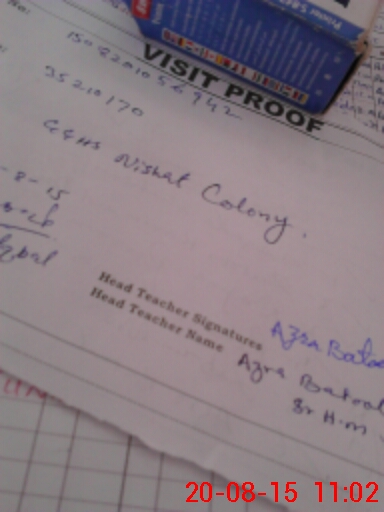 No:
VISIT PROOF
35210170
GGHS Nishat Colony.
-8-15
Head Teacher Signatures
Azra Batoo
Head Teacher Name
Azra Batool
Sr H.M
20-08-15 11:02